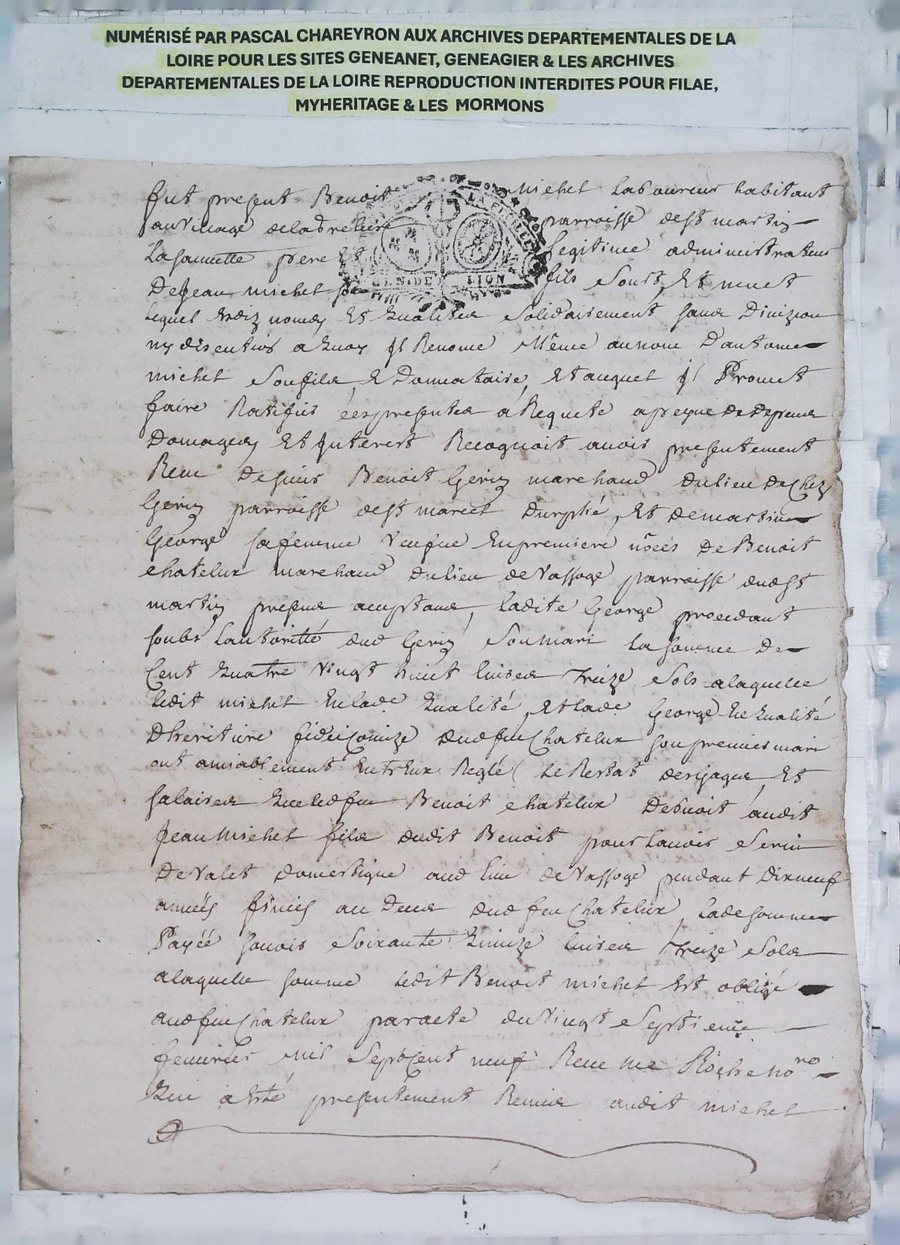 NUMÉRISÉ PAR PASCAL CHAREYRON AUX ARCHIVES DEPARTEMENTALES DE LA
LOIRE POUR LES SITES GENEANET, GENEAGIER & LES ARCHIVES
DEPARTEMENTALES DE LA LOIRE REPRODUCTION INTERDITES POUR FILAE,
MYHERITAGE & LES MORMONS
fut present Benoit michel laboureur habitant
au village parroisse de st martin
La sauvette pere legitime administrateur
De Jean michel fils sourt et muet
lequel solidairement sans Division
ny discution a quoy il Renonce même au nom D'antoine
michel son fils et Donnataire, et auquel il Promet
faire Ratifier ces presentes a Requete a peyne de depens
Domages et Interest Recognoit avoir presentement
Receu de sieur Benoit Gerin marchand du lieu de chez
Gerin parroisse de st marcel d'urphé, et de martine
George sa femme veufue en premiere noces de Benoit
chatelux marchand du lieu de vassoge parroisse dud st
martin presens acceptans, ladite George procedant
soubs l'autoritté dud Gerin son mari la somme de
Cent quatre vingt huict livres treize sols a laquelle
ledit michel en lade qualité, et lade George en qualité
D'heritiere dud feu Chatelux son premier mari
ont amiablement entreux Reglé le Restat des gages et
salaires que led feu Benoit chatelux Debvoit audit
Jean michel fils dudit Benoit pour l'avoir servi
De valet domestique aud lieu de vassoge pendant dix neuf
années finies au deces dud feu Chatelux, lade somme
Payéé scavoir soixante quinze livres treize sols
a laquelle somme ledit Benoit michel est obligé
aud feu Chatelux par acte du vingt septieme
fevrier mil sept cent neuf Receu me Roche nore
qui a été presentement Remise audit michel